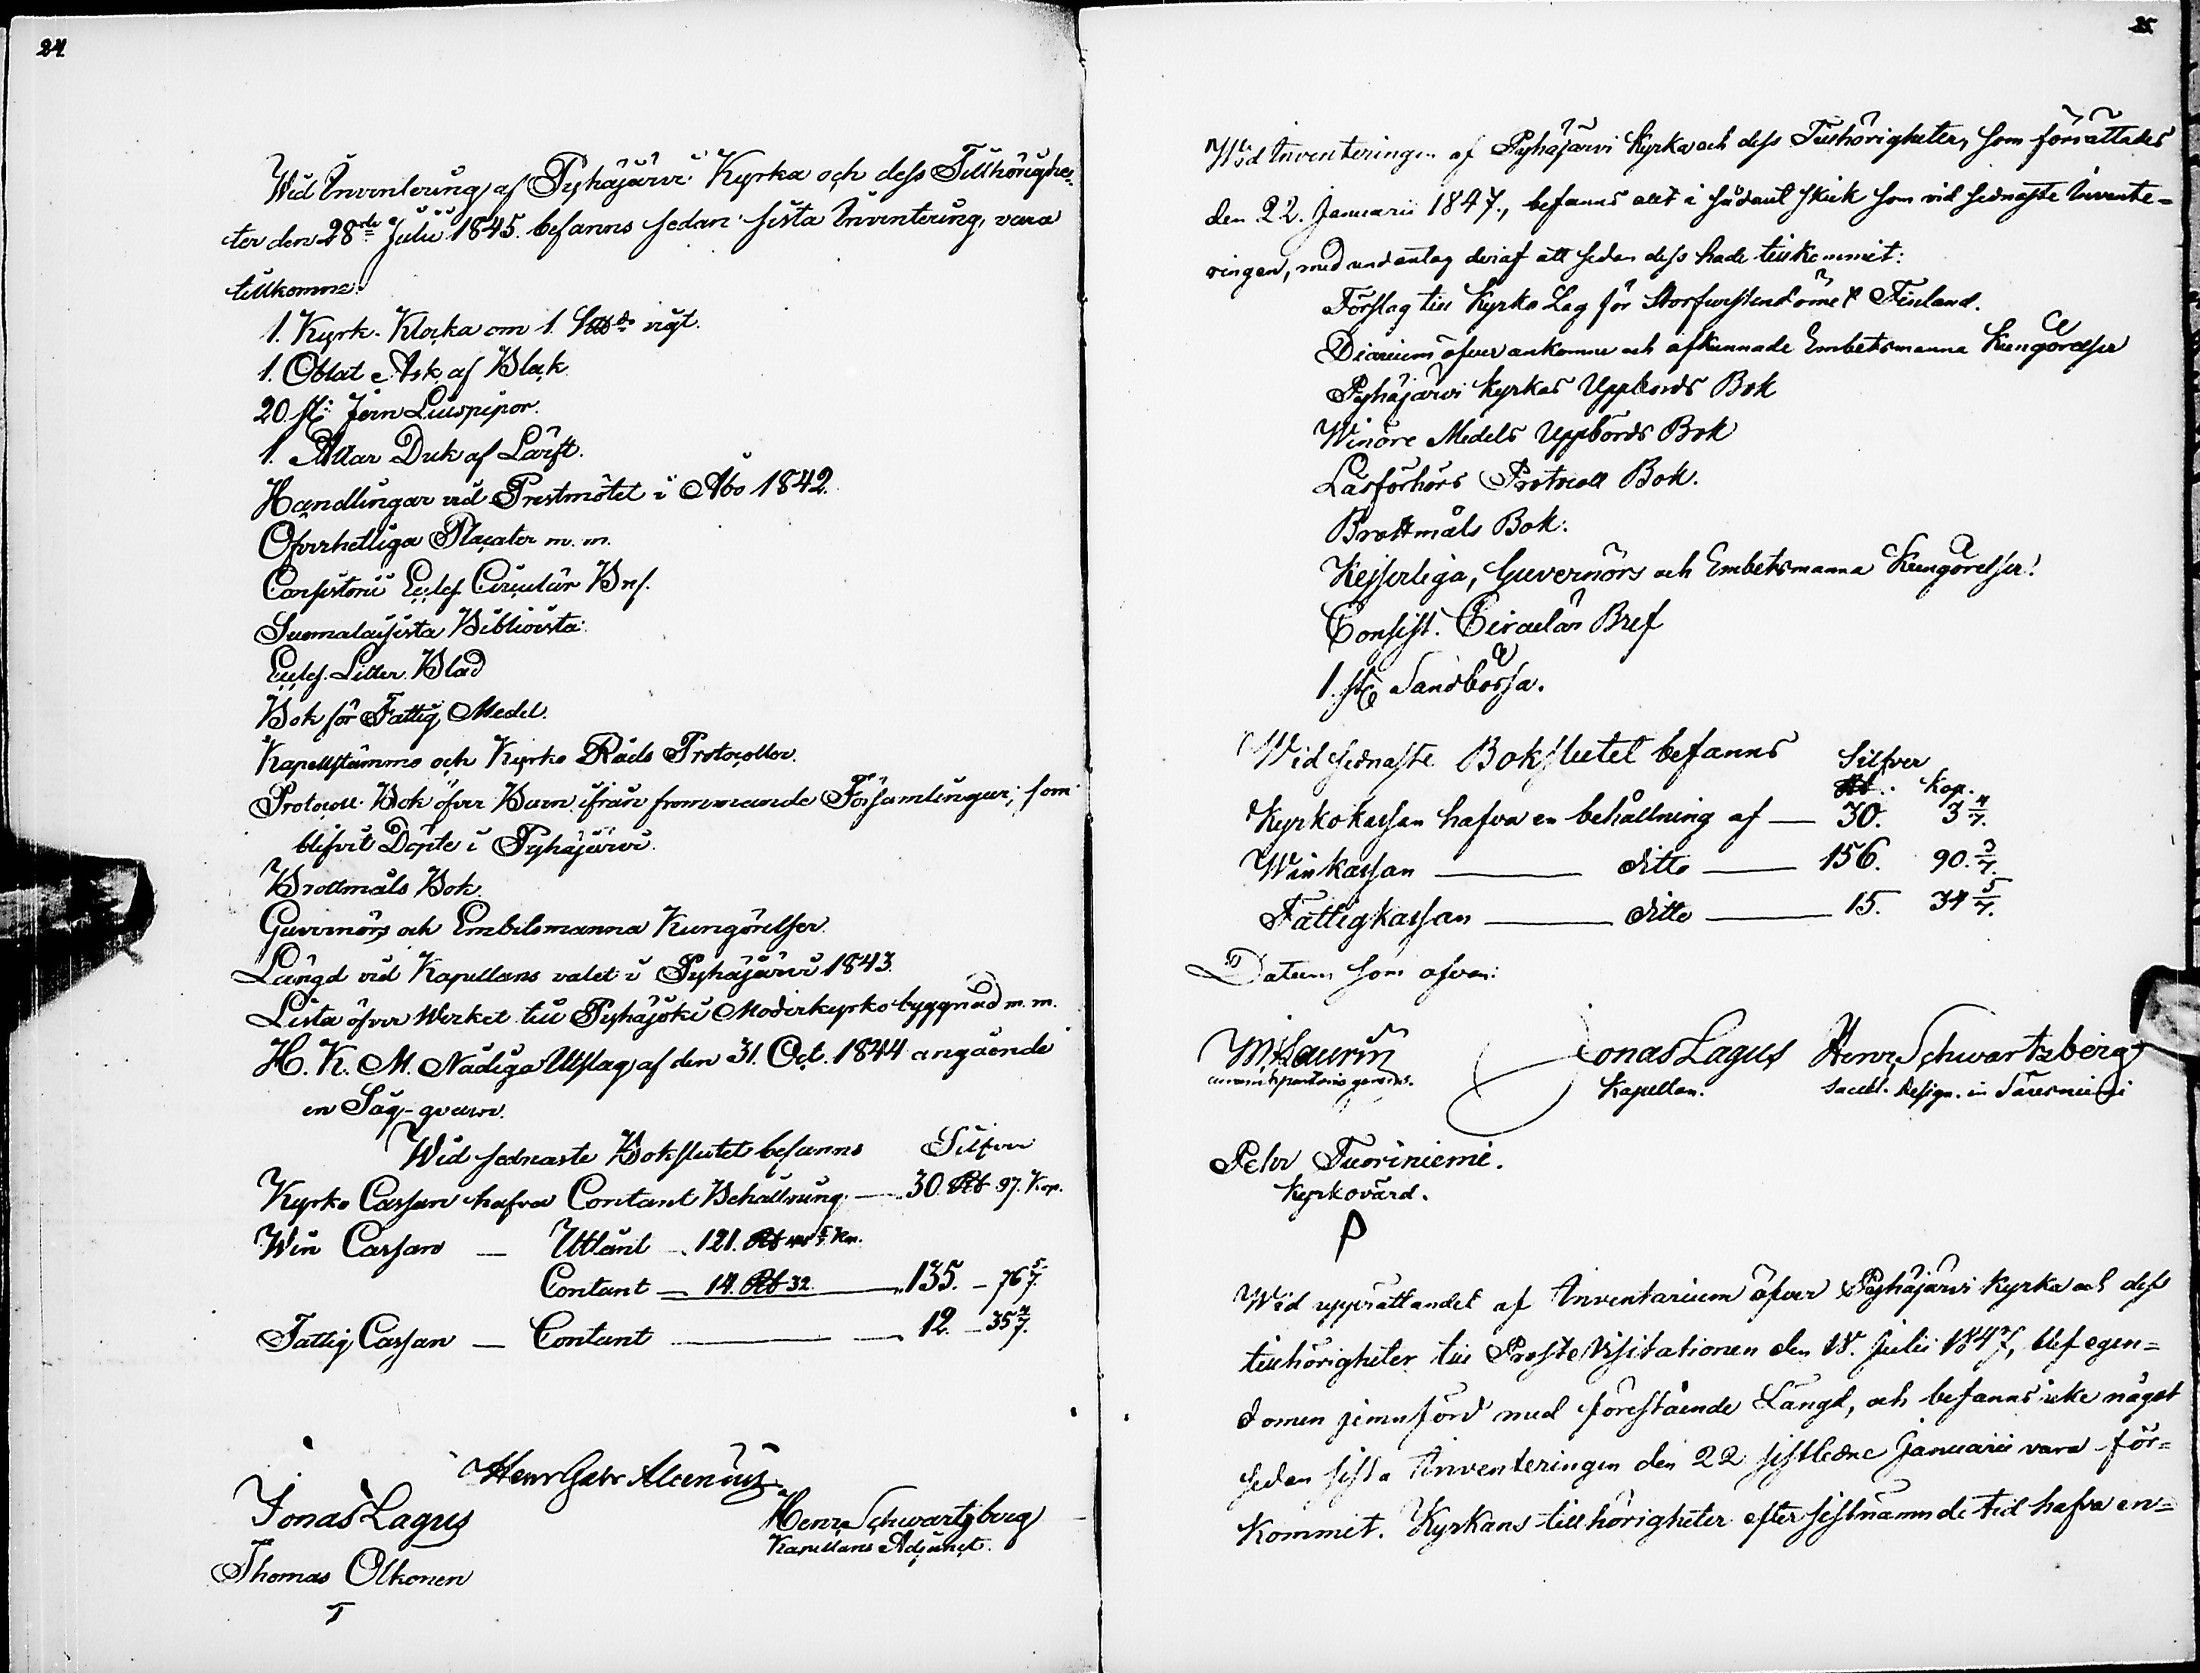 24
Wid Inventering af Pyhäjärvi Kyrka och dess Tillhörighe-
ter den 28de Julii 1845. befanns sedan sista Inventering, vara
tillkomne:
1. Kyrk-Klocka om 1. vigt.
1. Oblat Ask af Bläck
20. st: Jern Liuspipor.
1. Altar Duk af Lärft.
Handlingar vid Prestmötet i Åbo 1842.
Öfverhetliga Placater m. m.
Consistorii Eccles. Circulär Bref.
Suomalaisista Bibliöista.
Eccles. Litter. Blad
Bok för Fattig Medel.
Kapellstämmo och Kyrko Råds Protocoller.
Protocoll-Bok öfver Barn ifrån frammande Församlingar, som
blifvit Döpte i Pyhäjärvi.
Brottmåls Bok.
Guvernörs och Embetsmanna Kungörelser.
Längd vid Kapellans valet i Pyhäjärvi 1843.
Lista öfver Werket till Pyhäjoki Moderkyrko byggnad m. m.
H. K. M. Nådiga Utslag af den 31. Oct. 1844 angående
en Såg-qvarn.
Wid sednaste Bokslutet befanns Silfver
Kyrko Cassan hafva Contant Behållning — 30. Rb 97. Kop.
Win Cassan — Utlånt — 121. Rb
Contant — 14. Rb 32. — 135. — 76 5/7.
Fattig Cassan — Contant — 12. — 35 4/7.
Henr Gabr Alcenius
Jonas Lagus
Henr. Schwartzberg
Kapellans Adjunct.
Thomas Olkonen
T
25
Wid Inventeringen af Pyhäjärvi Kyrka och dess Tillhörigheter, som förrättades
den 22. Januarii 1847., befanns allt i sådant skick som vid sednaste Invente=
ringen, med undantag deraf att sedan dess hade tillkommit:
Förslag till Kyrko Lag för Storfurstendömet Finland.
Diarium öfver ankomne och afkunnade Embetsmanna Kungörelser
Pyhäjärvi Kyrkas Uppbörds Bok
Winöre Medels Uppbörds Bok
Läsförhörs Protocoll Bok.
Brottmåls Bok.
Kejserliga, Guvernörs och Embetsmanna Kungörelser.
Consist. Circulär Bref
1. st Sandbössa.
Wid sednaste Bokslutet befanns Silfver
Rb. Kop.
Kyrkokassan hafva en behållning af — 30. 3 4/7.
Winkassan — ditto — 156. 90. 3/7.
Fattigkassan — ditto — 15. 34 5/7.
Datum som ofvan:
Laurin
Jonas Lagus Henr. Schwartzberg
Kapellan. Sacell. design. in
Pehr Tuoriniemi.
Kyrkovärd.
P
Wid upprättandet af Inventarium öfver Pyhäjärvi Kyrka och dess
tillhörigheter till Proste Visitationen den 18. Julii 1847, blef egen=
domen jemnförd med förestående Längd, och befanns icke något
sedan sista Inventeringen den 22 sistledne Januarii vara för=
kommit. Kyrkans tillhörigheter efter sistnämnde tid hafva en=